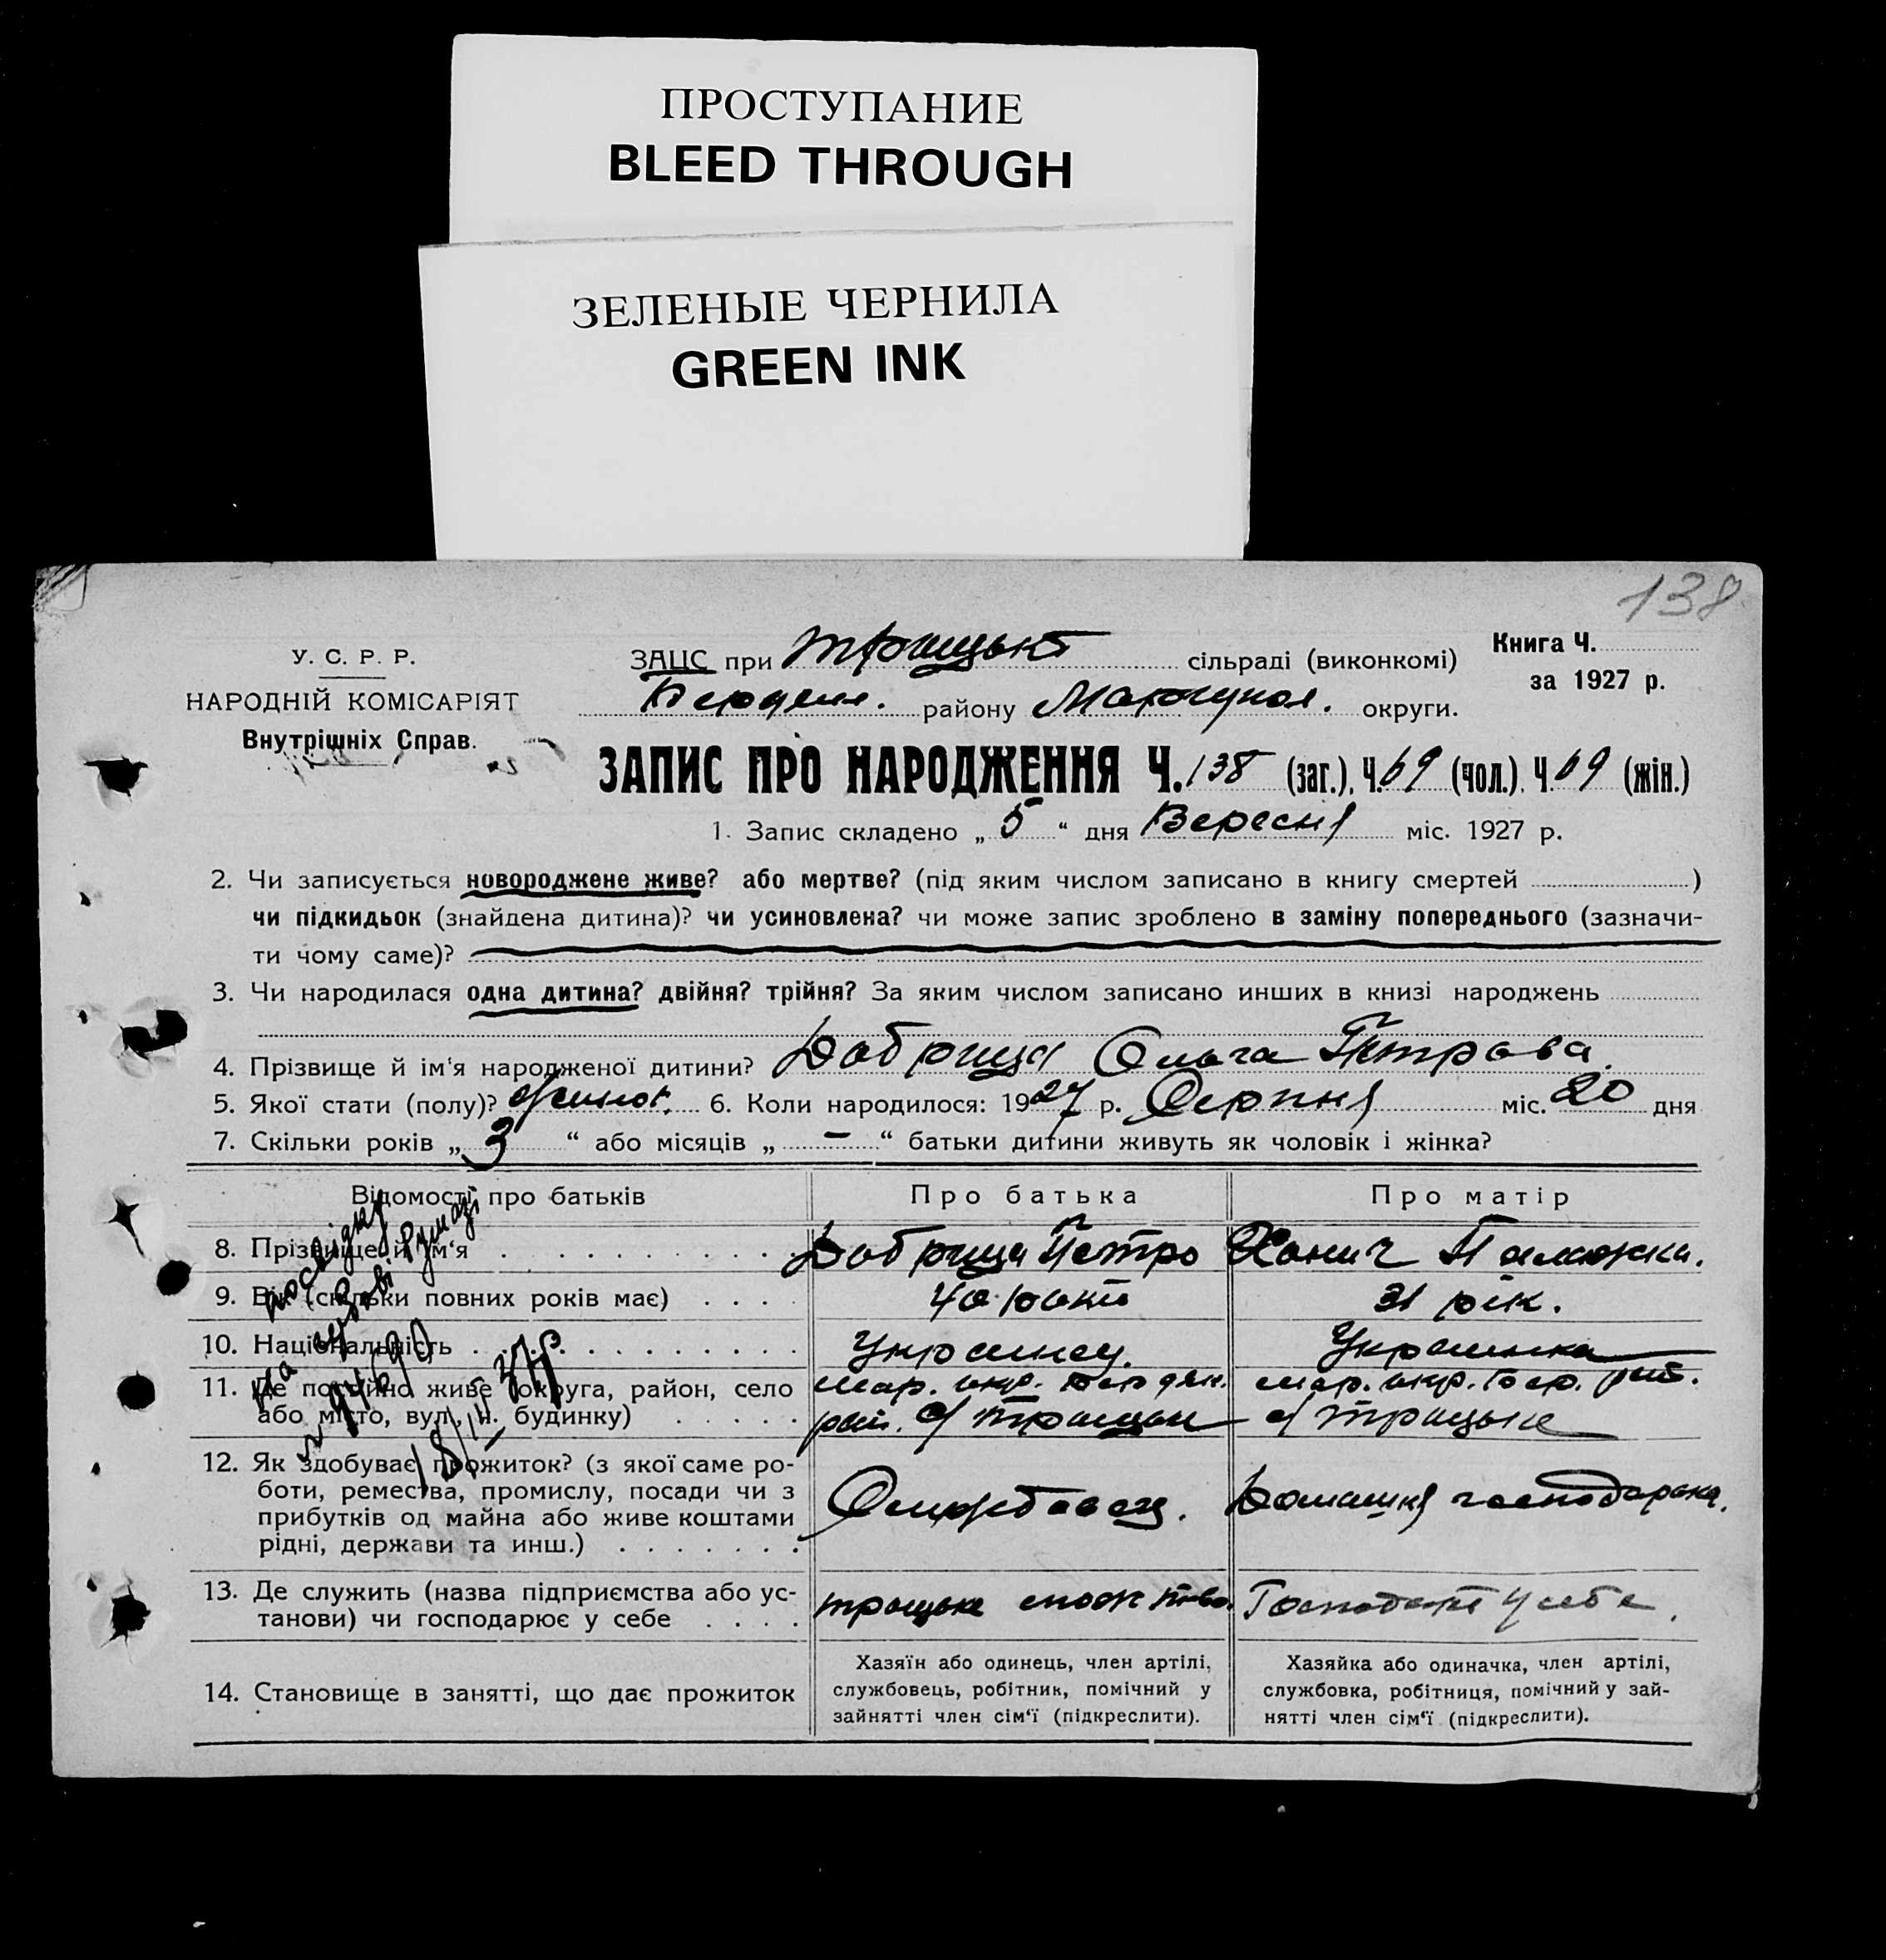 ПРОСТУПАНИЕ
BLEED THROUGH
ЗЕЛЕНЫЕ ЧЕРНИЛА
GREEN INK
138
У. С. Р. Р.
НАРОДНІЙ КОМІСАРІЯТ
Внутрішніх Справ.
ЗАЦС при Троицькі сільраді (виконкомі)
Бердян. району Маріупол. округи.
Книга Ч.
за 1927 р.
ЗАПИС ПРО НАРОДЖЕННЯ Ч. 138 (заг.), Ч. 69 (чол.), Ч. 69 (жін.)
1. Запис складено „ 5 “ дня Вересня міс. 1927 р.
2. Чи записується новороджене живе? або мертве? (під яким числом записано в книгу смертей )
чи підкидьок (знайдена дитина)? чи усиновлена? чи може запис зроблено в заміну попереднього (зазначи-
ти чому саме)?
3. Чи народилася одна дитина? двійня? трійня? За яким числом записано инших в книзі народжень
4. Прізвище й ім‘я народженої дитини? Добриця Ольга Петрова
5. Якої стати (полу)? жіноч. 6. Коли народилося: 1927 р. Серпня міс. 20 дня
7. Скільки років „ 3 “ або місяців „ — “ батьки дитини живуть як чоловік і жінка?
Відомості про батьків Про батька Про матір
8. Прізвище й ім‘я Добриця Петро
9. Вік (скільки повних років має) 31 рік.
10. Національність Украинец. Украинка
11. Де постійно живе (округа, район, село
або місто, вул., н. будинку)
мар. окр. Бердян.
рай. с/ Троицьк
мар. окр. Бер. рай.
с/ Троицьке
12. Як здобуває прожиток? (з якої саме ро-
боти, ремества, промислу, посади чи з
прибутків од майна або живе коштами
рідні, держави та инш.)
Службовец.
Домашня господарка.
13. Де служить (назва підприємства або ус-
танови) чи господарює у себе
Троицьке
у себе.
14. Становище в занятті, що дає прожиток
Хазяїн або одинець, член артілі,
службовець, робітник, помічний у
зайнятті член сім‘ї (підкреслити).
Хазяйка або одиначка, член артілі,
службовка, робітниця, помічний у зай-
нятті член сім‘ї (підкреслити).